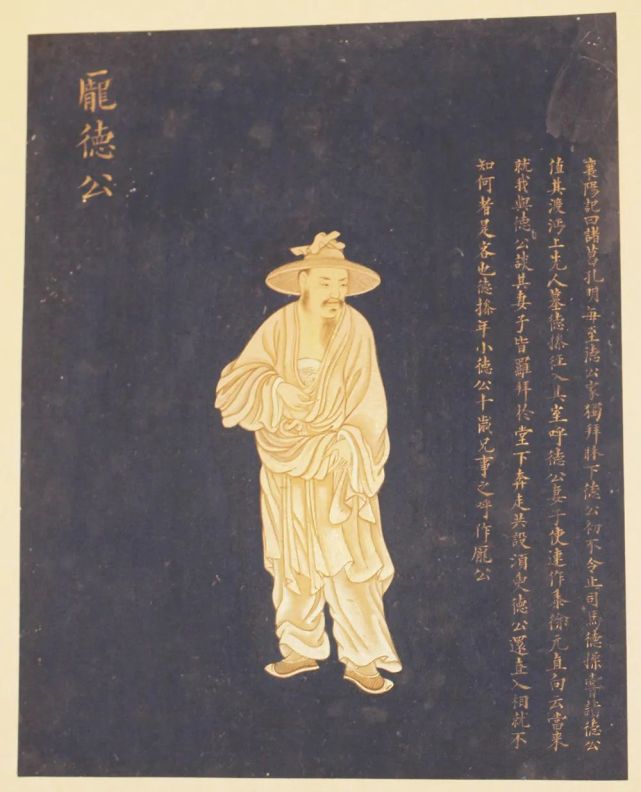 龐德公
襄陽記曰諸葛孔明每至德公家獨拜牀下德公初不令止司馬德操嘗詣德公
值其渡沔上先人墓德操徑入其室呼德公妻子使速作黍徐元直向云當來
就我與德公談其妻子皆羅拜於堂下奔走共設須臾德公還直入相就不
知何者是客也德操年小德公十歲兄事之呼作龐公